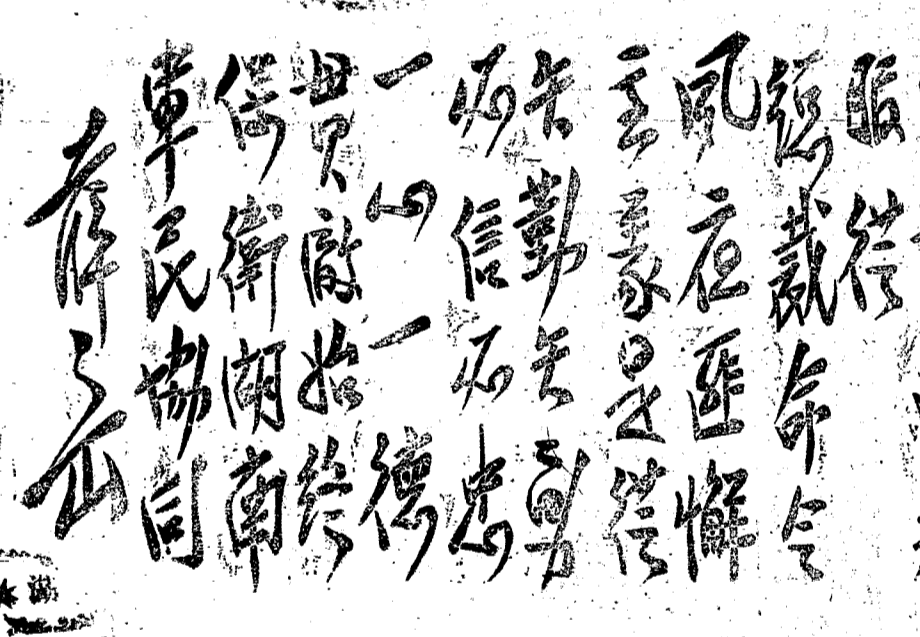 服從
總裁命令
夙夜匪懈
主義是從
矢勤矢勇
必信必忠
一心一德
貫澈始終
保衛湖南
軍民協同